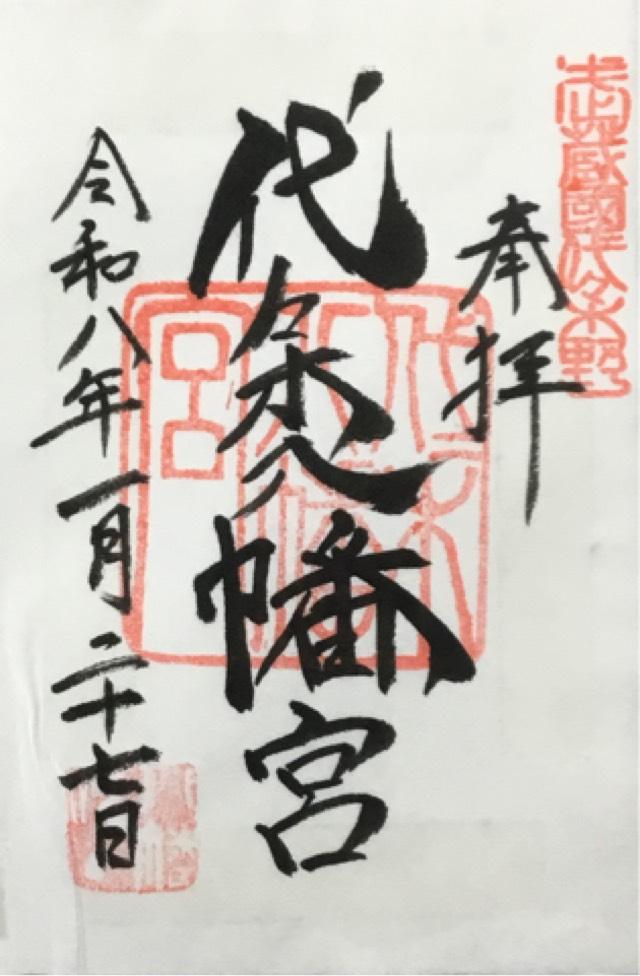 武蔵國代々木野
奉拝
代々木八幡宮
代々木
八幡
宮
令和八年一月二十七日